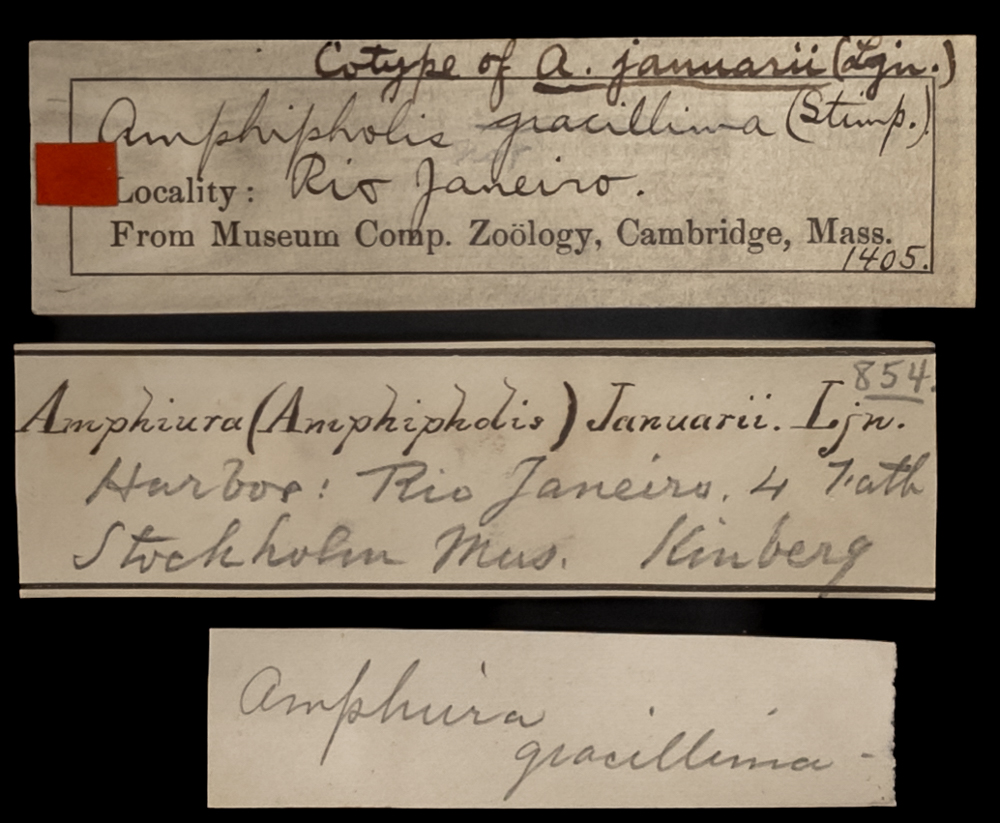 Cotype of A. januarii (Ljn.)
Amphipholis gracillima (Stimp.)
Locality: Rio Janeiro.
From Museum Comp. Zoölogy, Cambridge, Mass.
1405.
854.
Amphiura (Amphipholis) Januarii. Ljn.
Harbor: Rio Janeiro. 4 Fath
Stockholm Mus. Kinberg
Amphiura
gracillima -